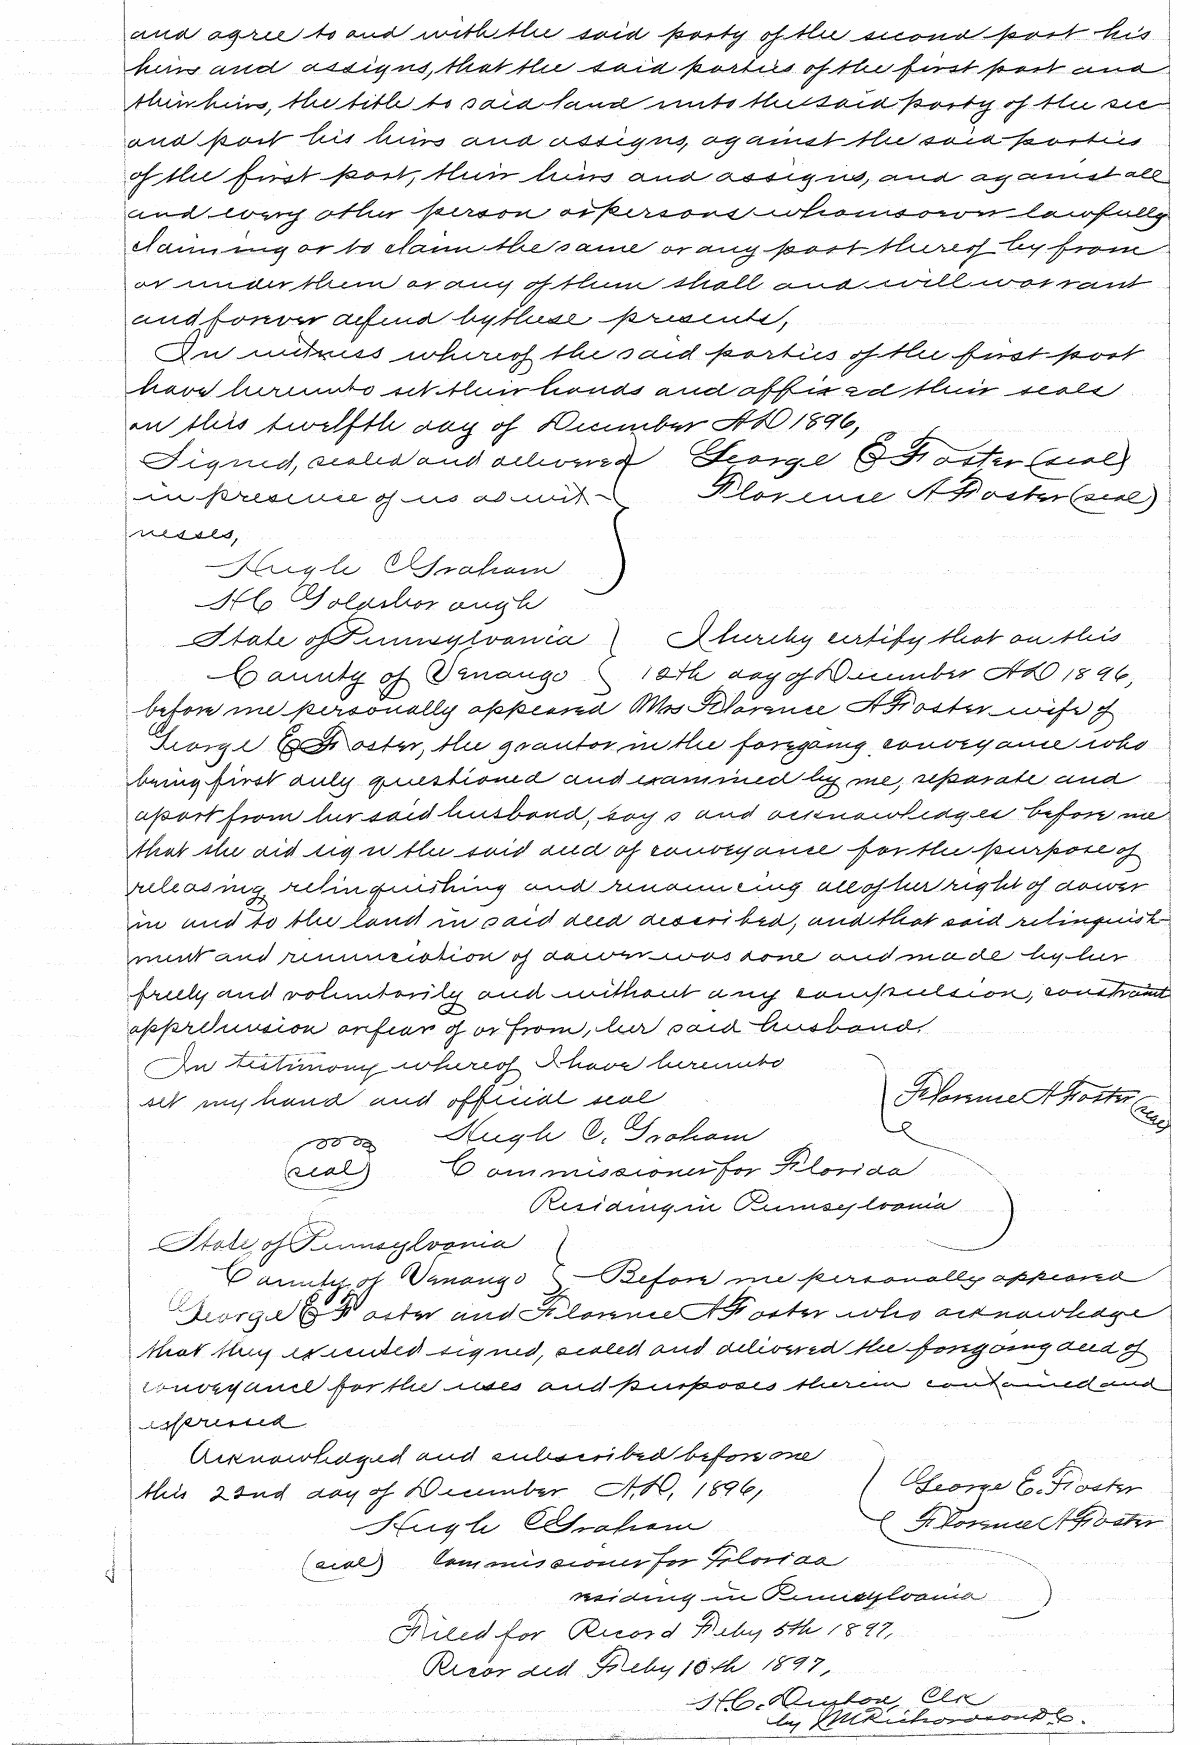 and agree to and with the said party of the second part his
heirs and assigns, that the said parties of the first part and
their heirs, the title to said land unto the said party of the sec
ond part his heirs and assigns, against the said parties
of the first part, their heirs and assigns, and against all
and every other person or persons whomsoever lawfully
claiming or to claim the same or any part thereof by from
or under them or any of them shall and will warrant
and forever defend by these presents,
In witness whereof the said parties of the first part
have hereunto set their hands and affixed their seals
on this twelfth day of December AD 1896,
Signed, sealed and delivered George E Foster (seal)
in presence of us as wit- Florence A Foster (seal)
nesses,
Hugh C Graham
H C Goldsborough
State of Pennsylvania I hereby certify that on this
County of Venango 12th day of December AD 1896,
before me personally appeared Mrs Florence A Foster wife of
George E Foster, the grantor in the foregoing conveyance who
being first duly questioned and examined by me, separate and
apart from her said husband, says and acknowledges before me
that she did sign the said deed of conveyance for the purpose of
releasing, relinquishing and renouncing all of her right of dower
in and to the land in said deed described, and that said relinquish-
ment and renunciation of dower was done and made by her
freely and voluntarily and without any compulsion, constraint
apprehension or fear of or from, her said husband.
In testimony whereof I have hereunto
set my hand and official seal Florence A Foster (seal)
Hugh C. Graham
(seal) Commissioner for Florida
Residing in Pennsylvania
State of Pennsylvania
County of Venango Before me personally appeared
George E Foster and Florence A Foster who acknowledge
that they executed signed, sealed and delivered the foregoing deed of
conveyance for the uses and purposes therein contained and
expressed
Acknowledged and subscribed before me
this 22nd day of December A.D. 1896, George E. Foster
Hugh C Graham Florence A Foster
(seal) Commissioner for Florida
residing in Pennsylvania
Filed for Record Feby 5th 1897,
Recorded Feby 10th 1897,
H.C. Clk
by Richardson D.C.